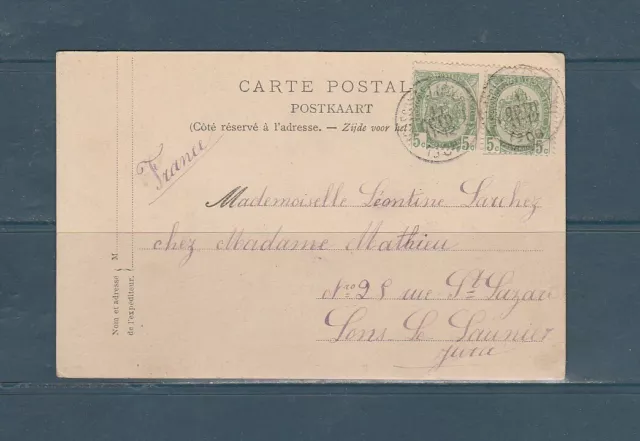 CARTE POSTAL
POSTKAART
(Côté réservé à l'adresse. — Zijde voor het
France
Mademoiselle Léontine Sarchez
chez Madame Mathieu
N° 28 rue St Lazare
Lons le Saunier
Jura
Nom et adresse } M
de l'expéditeur.
5c 5c 5c 5c